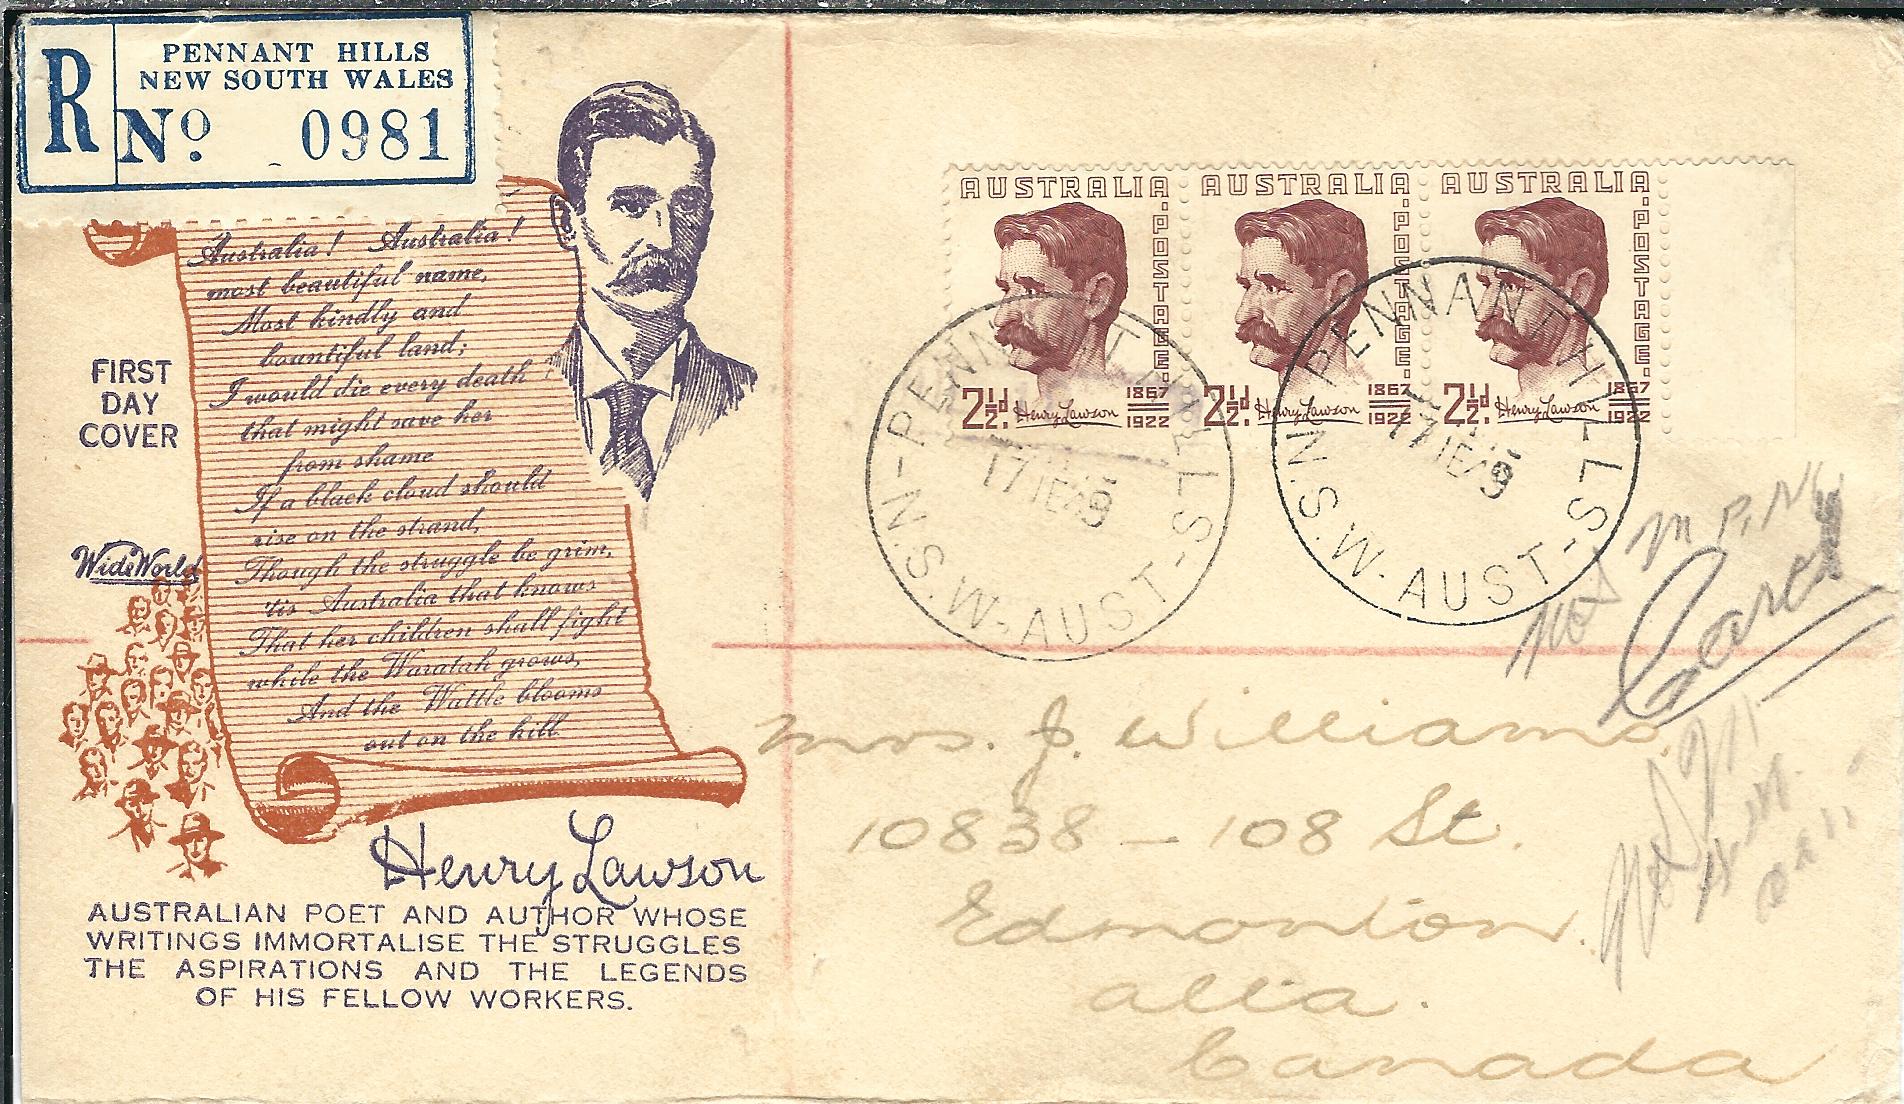 R
PENNANT HILLS
NEW SOUTH WALES
No. 0981
Australia! Australia!
most beautiful name,
Most kindly and
bountiful land;
I would die every death
that might save her
from shame
If a black cloud should
rise on the strand,
Though the struggle be grim,
'tis Australia that knows
That her children shall fight
while the Waratah grows,
And the Wattle blooms
out on the hill.
FIRST
DAY
COVER
WideWorld
Henry Lawson
AUSTRALIAN POET AND AUTHOR WHOSE
WRITINGS IMMORTALISE THE STRUGGLES
THE ASPIRATIONS AND THE LEGENDS
OF HIS FELLOW WORKERS.
AUSTRALIA·POSTAGE·
2½d. Henry Lawson 1867 1922
AUSTRALIA·POSTAGE·
2½d. Henry Lawson 1867 1922
AUSTRALIA·POSTAGE·
2½d. Henry Lawson 1867 1922
PENNANT HILLS
17 JE 49
N.S.W-AUST-
PENNANT HILLS
17 JE 49
N.S.W-AUST-
Mrs. J. Williams.
10838 – 108 St.
Edmonton.
Canada